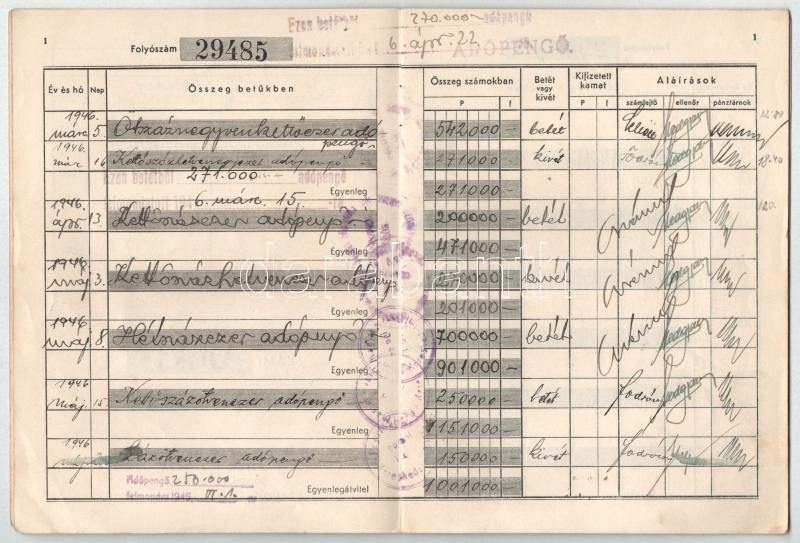 1
Folyószám 29485
Ezen betétb
270.000.- adópengő
6 ápr. 22
ADÓPENGŐ.
1
Év és hó Nap Összeg betűkben Összeg számokban Betét vagy kivét Kifizetett kamat Aláírások
P f P f számfejtő ellenőr pénztárnok
1946 márc 5. Ötszáznegyvenkettőezer adó 542000 — betét 12.
pengő
1946 már. 16 Kettőszázhetvenegyezer adópengő 271000 — kivét 18.40
Ezen betétből adópengő
271.000 —
Egyenleg 271000 —
6. már. 15.
1946 ápr. 13. Kettőszázezer adópengő 200000 — betét 120.
Egyenleg 471000 —
1946 máj 3. Kettőszázhetvenezer adópengő 270000 — kivét
Egyenleg 201000 —
1946 máj 8. Hétszázezer adópengő 700000 — betét
Egyenleg 901000 —
1946 máj. 15. Kettőszázötvenezer adópengő 250000 — betét
Egyenleg 1151000 —
1946 Százötvenezer adópengő 150000 — kivét
Adópengő 250.000
felmondva 1946. VI. 1.
Egyenlegátvitel 1001000 —
darabanth